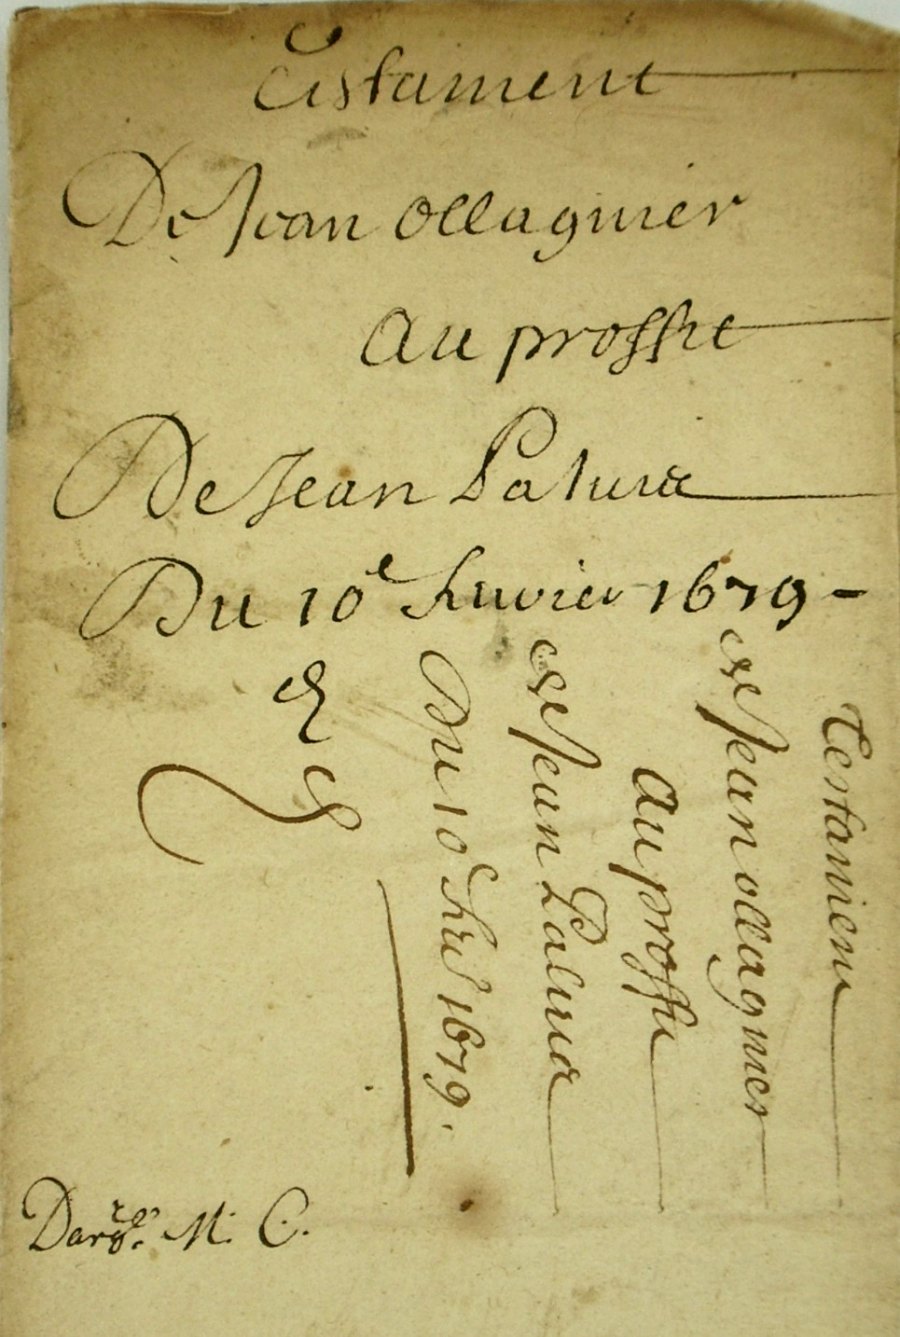 Testament
De Jean Ollagnier
Au proffit
De Jean Patura
Du 10e 1679 -
Testament
de Jean ollagnier
au proffit
de Jean Patura
Du 10e 1679.
M. C.